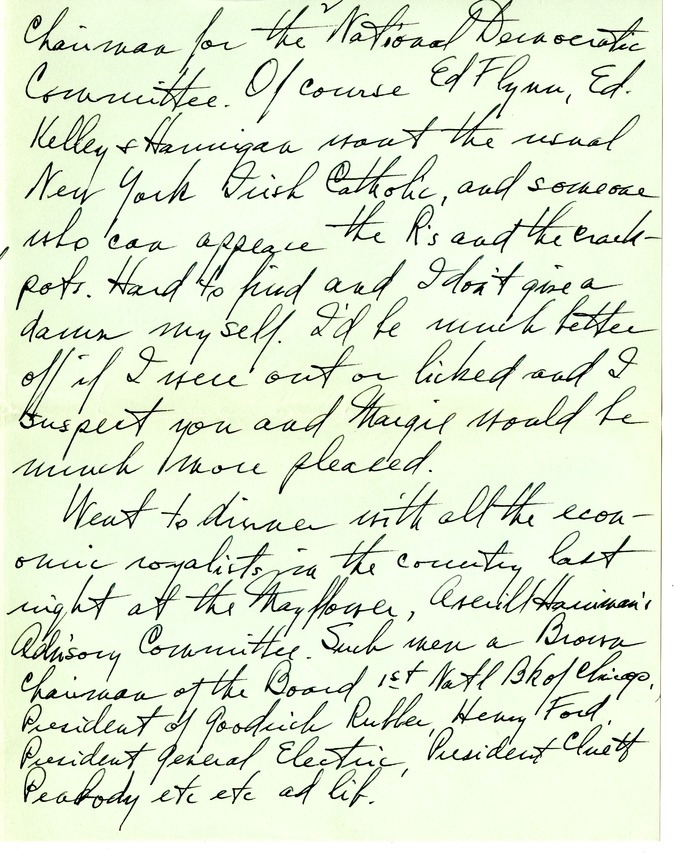 Chairman for the National Democratic
Committee. Of course Ed Flynn, Ed.
Kelley & Hannigan want the usual
New York Irish Catholic, and someone
who can appease the R's and the crack-
pots. Hard to find and I don't give a
damn myself. I'd be much better
off if I were out or licked and I
suspect you and Margie would be
much more pleased.
Went to dinner with all the econ-
omic royalists in the country last
night at the Mayflower, Averill Harriman's
Advisory Committee. Such men a Brown
Chairman of the Board 1st Nat'l Bk of Chicago,
President of Goodrich Rubber, Henry Ford,
President General Electric, President Cluett
Peabody etc etc ad lib.